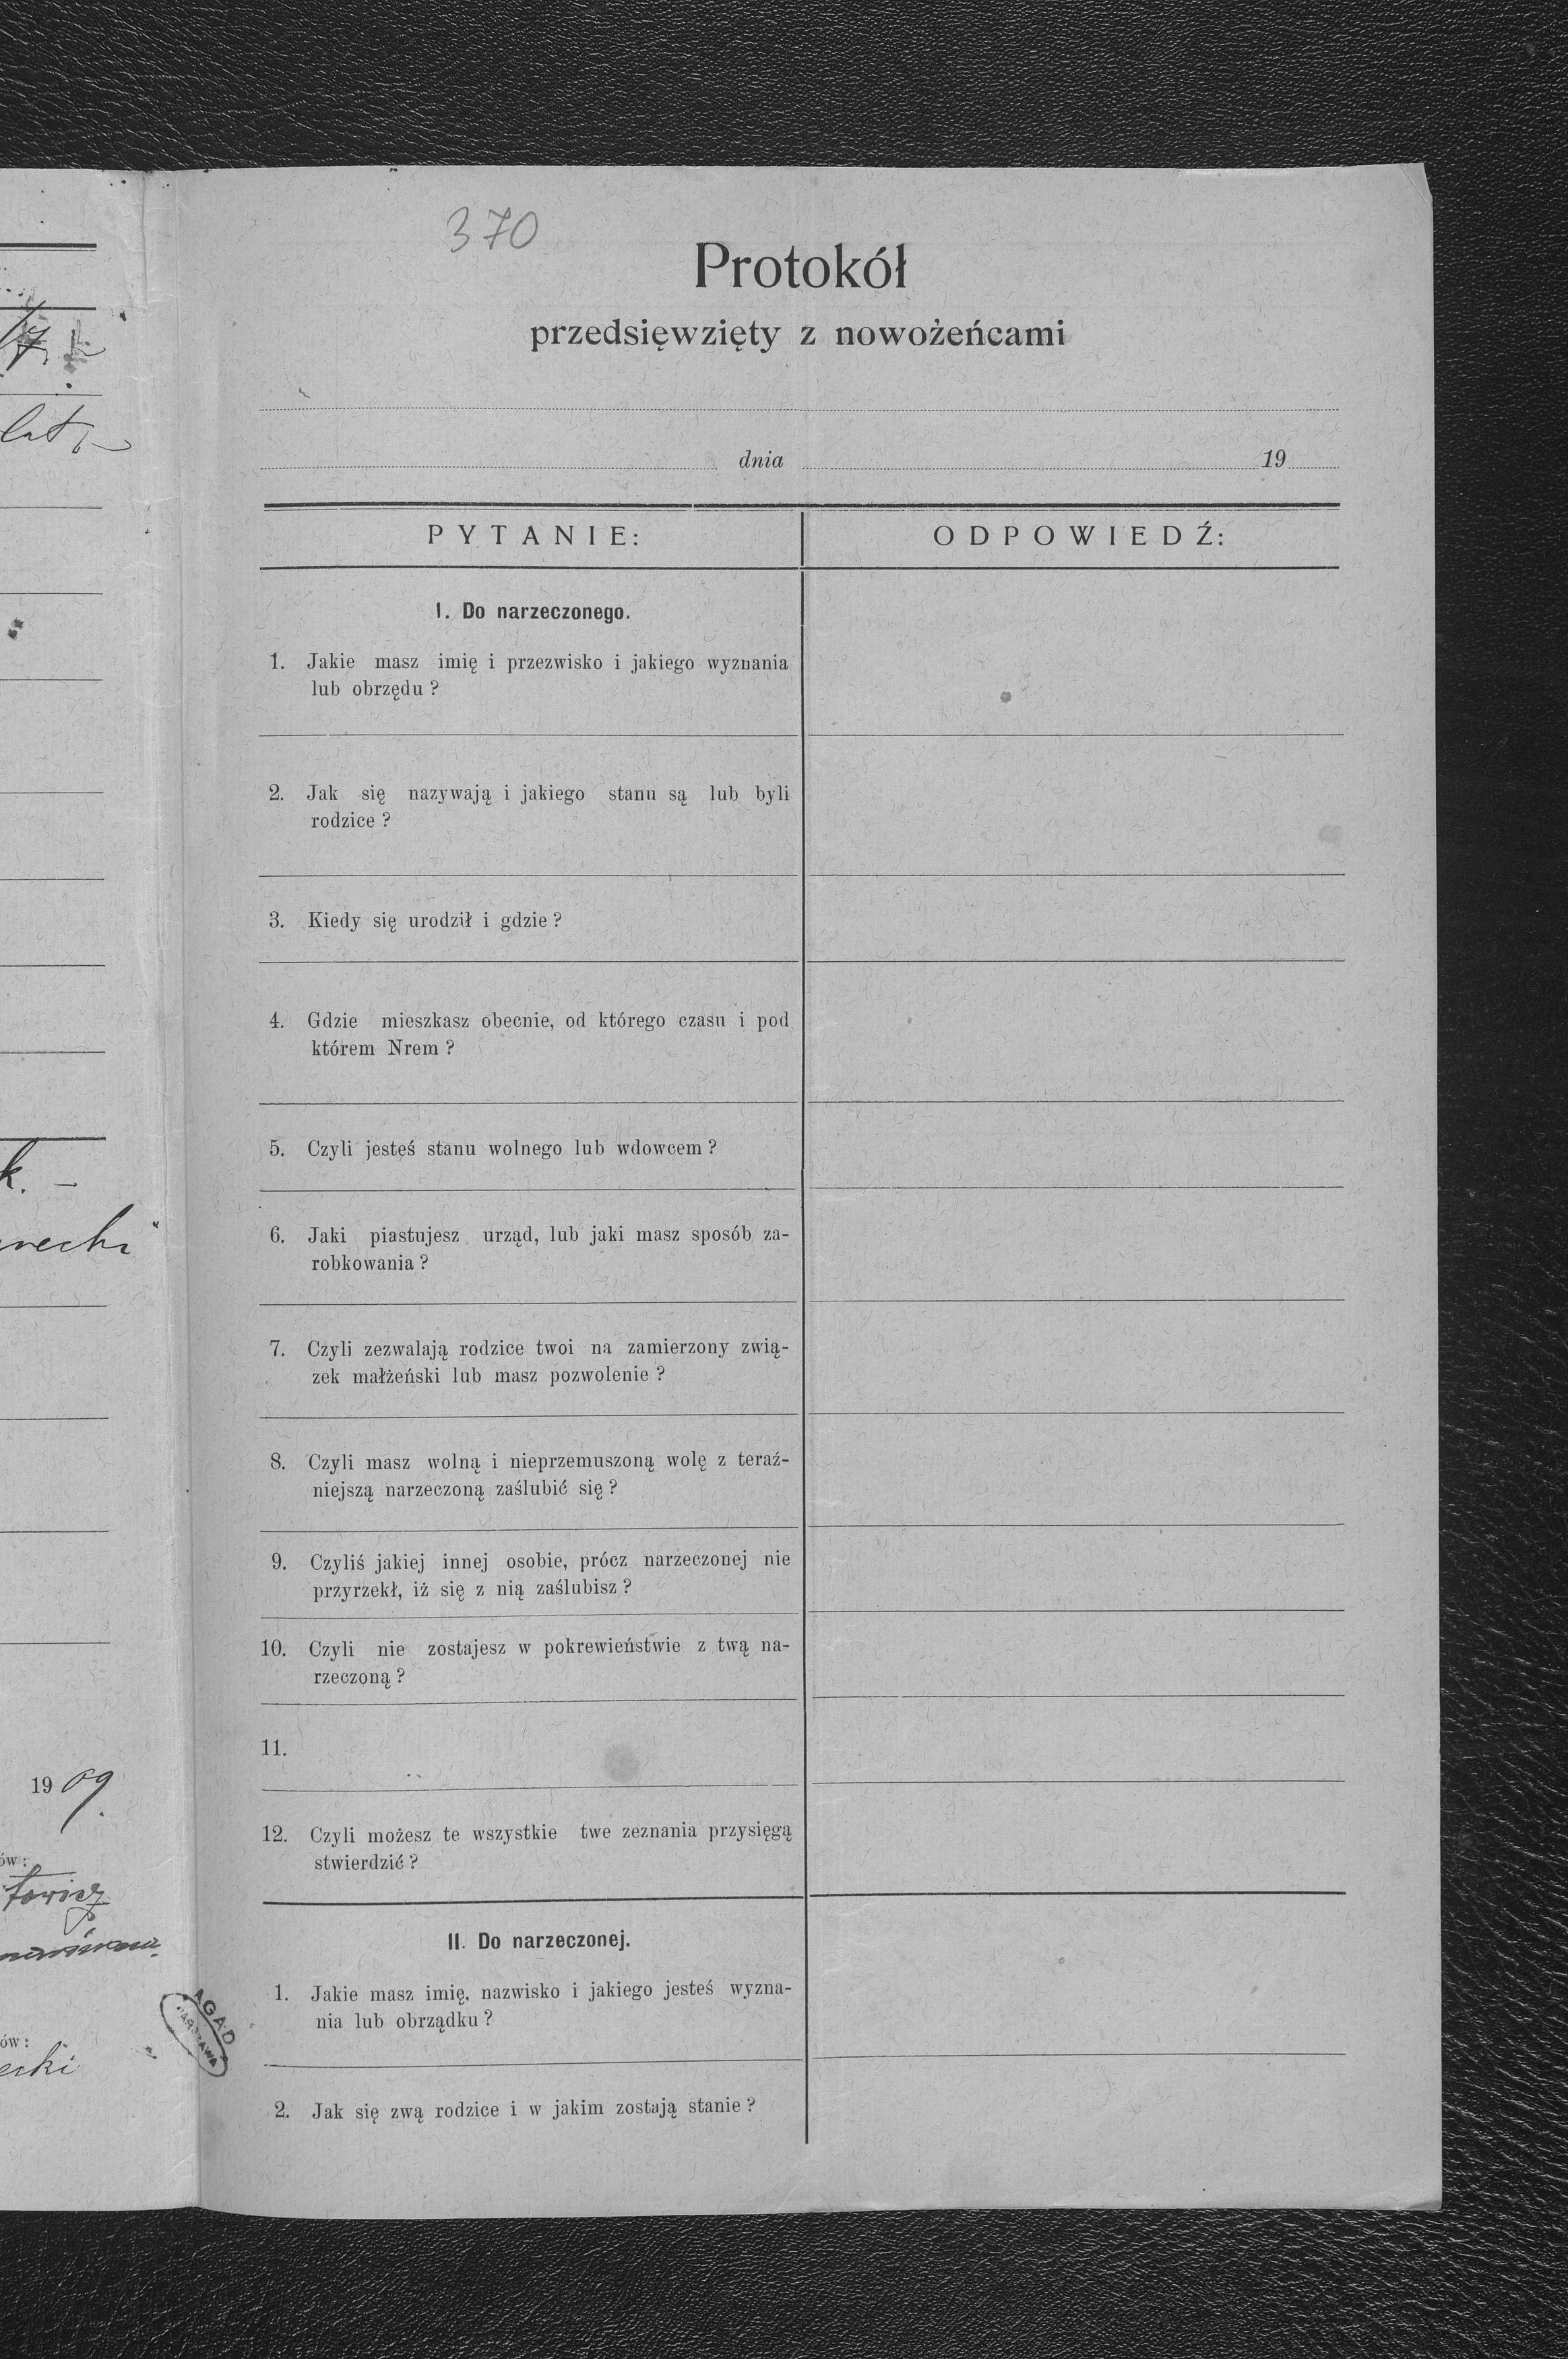 370
Protokół
przedsięwzięty z nowożeńcami
dnia 19
PYTANIE:
ODPOWIEDŹ:
I. Do narzeczonego.
1. Jakie masz imię i przezwisko i jakiego wyznania
lub obrzędu?
2. Jak się nazywają i jakiego stanu są lub byli
rodzice?
3. Kiedy się urodził i gdzie?
4. Gdzie mieszkasz obecnie, od którego czasu i pod
którem Nrem?
5. Czyli jesteś stanu wolnego lub wdowcem?
6. Jaki piastujesz urząd, lub jaki masz sposób za-
robkowania?
7. Czyli zezwalają rodzice twoi na zamierzony zwią-
zek małżeński lub masz pozwolenie?
8. Czyli masz wolną i nieprzemuszoną wolę z teraź-
niejszą narzeczoną zaślubić się?
9. Czyliś jakiej innej osobie, prócz narzeczonej nie
przyrzekł, iż się z nią zaślubisz?
10. Czyli nie zostajesz w pokrewieństwie z twą na-
rzeczoną?
11.
12. Czyli możesz te wszystkie twe zeznania przysięgą
stwierdzić?
II. Do narzeczonej.
1. Jakie masz imię, nazwisko i jakiego jesteś wyzna-
nia lub obrządku?
2. Jak się zwą rodzice i w jakim zostają stanie?
lat
k. -
1909.
ów:
ów:
ecki
AGAD
WARSZAWA